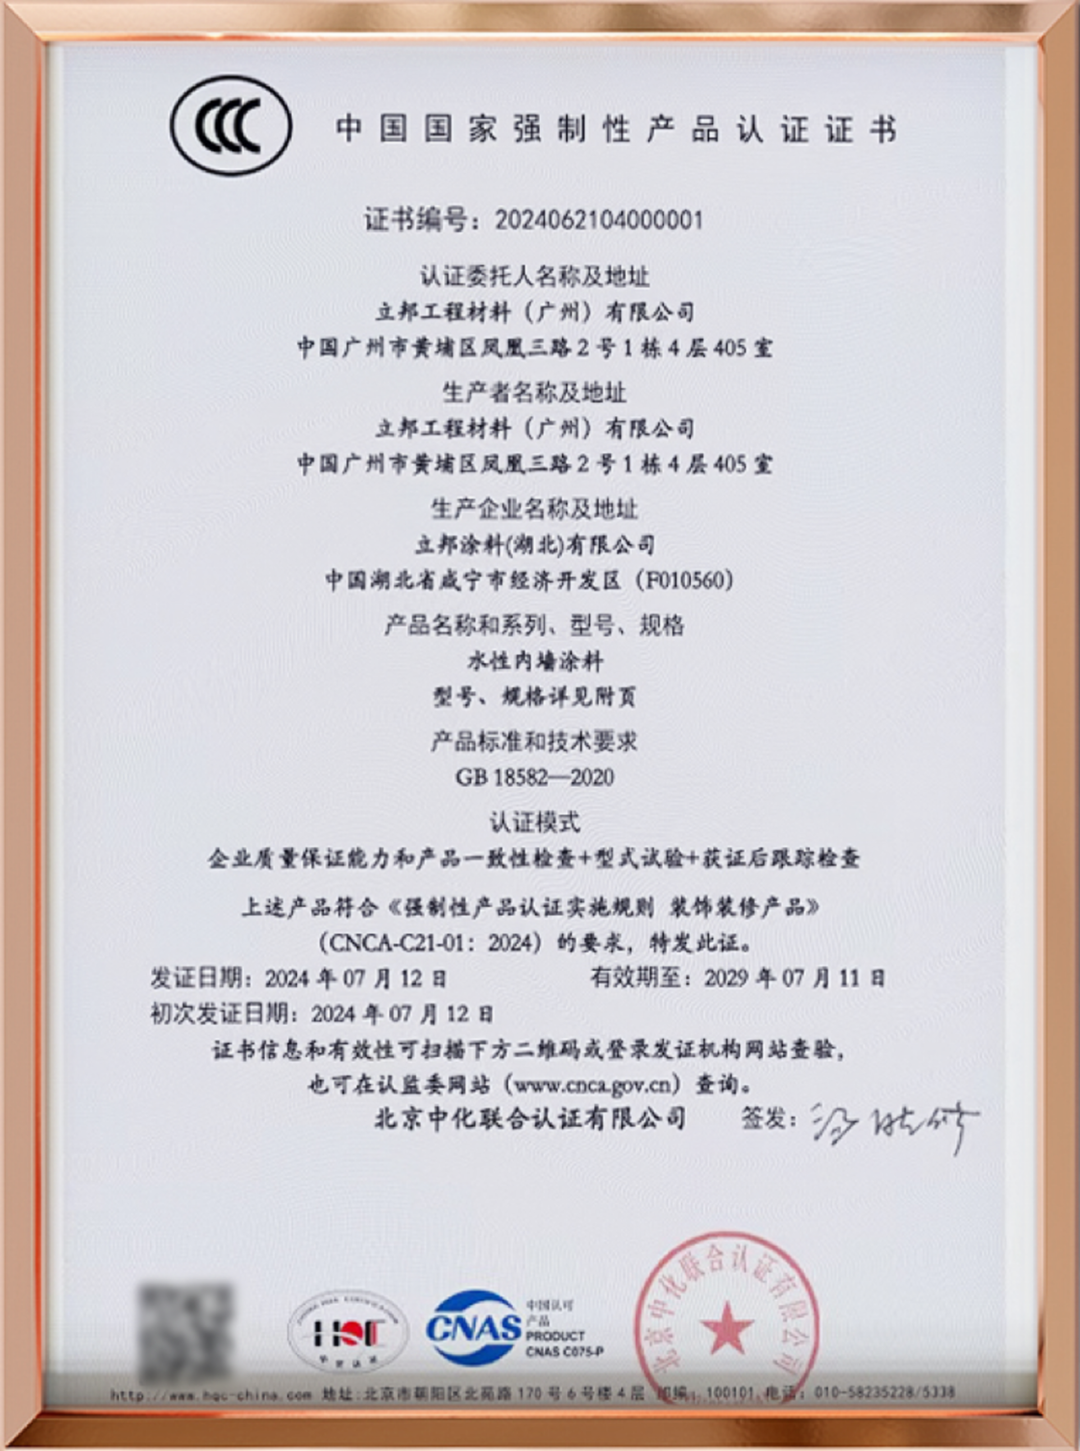 CCC
中国国家强制性产品认证证书
证书编号：2024062104000001
认证委托人名称及地址
立邦工程材料（广州）有限公司
中国广州市黄埔区凤凰三路2号1栋4层405室
生产者名称及地址
立邦工程材料（广州）有限公司
中国广州市黄埔区凤凰三路2号1栋4层405室
生产企业名称及地址
立邦涂料(湖北)有限公司
中国湖北省咸宁市经济开发区（F010560）
产品名称和系列、型号、规格
水性内墙涂料
型号、规格详见附页
产品标准和技术要求
GB 18582—2020
认证模式
企业质量保证能力和产品一致性检查+型式试验+获证后跟踪检查
上述产品符合《强制性产品认证实施规则 装饰装修产品》
（CNCA-C21-01：2024）的要求，特发此证。
发证日期：2024年07月12日 有效期至：2029年07月11日
初次发证日期：2024年07月12日
证书信息和有效性可扫描下方二维码或登录发证机构网站查验，
也可在认监委网站（www.cnca.gov.cn）查询。
北京中化联合认证有限公司 签发：
北京中化联合认证有限公司
HQC
CNAS
中国认可
产品
PRODUCT
CNAS C075-P
http://www.hqc-china.com 地址:北京市朝阳区北苑路170号6号楼4层 邮编：100101 电话：010-58235228/5338